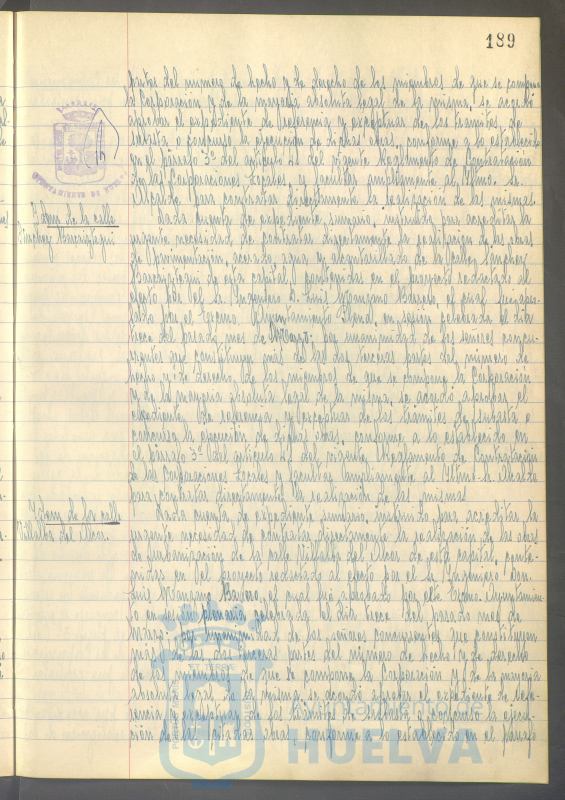 189
partes del numero de hecho y de derecho de los miembros de que se compone
la Corporación y de la mayoría absoluta legal de la misma, se acordó
aprobar el expediente de referencia y exceptuar de los tramites de
subasta o concurso la ejecución de dichas obras, conforme a lo establecido
en el párrafo 3º del artículo 41 del vigente Reglamento de Contratación
de las Corporaciones Locales y facultar ampliamente al Iltmo. Sr.
Alcalde para contratar directamente la realización de las mismas.
AYUNTAMIENTO DE HUELVA
Idem de la calle
Sánchez Barcaiztegui
Dada cuenta de expediente sumario, instruido para acreditar la
urgente necesidad de contratar directamente la realización de las obras
de Pavimentación, acerado, agua y alcantarillado de la calle Sánchez
Barcaiztegui de esta capital, contenidas en el proyecto redactado al
efecto por el Sr. Ingeniero D. Luis Manzano Barrero, el cual fué apro-
bado por el Excmo. Ayuntamiento Pleno, en sesión celebrada el día
trece del pasado mes de Marzo; por unanimidad de los señores concu-
rrentes que constituyen más de las dos terceras partes del número de
hecho y de derecho de los miembros de que se compone la Corporación
y de la mayoría absoluta legal de la misma, se acordó aprobar el
expediente de referencia y exceptuar de los trámites de subasta o
concurso la ejecución de dichas obras, conforme a lo establecido en
el párrafo 3º del artículo 41 del vigente Reglamento de Contratación
de las Corporaciones Locales y facultar ampliamente al Iltmo. Sr. Alcalde
para contratar directamente la realización de las mismas
Idem de la calle
Villalba del Alcor.
Dada cuenta de expediente sumario, instruido para acreditar la
urgente necesidad de contratar directamente la realización de las obras
de urbanización de la calle Villalba del Alcor de esta capital, conte-
nidas en el proyecto redactado al efecto por el Sr. Ingeniero Don
Luis Manzano Barrero, el cual fué aprobado por este Excmo. Ayuntamien-
to en sesión plenaria celebrada el día trece del pasado mes de
Marzo; por unanimidad de los señores concurrentes que constituyen
más de las dos terceras partes del número de hecho y de derecho
de los miembros de que se compone la Corporación y de la mayoría
absoluta legal de la misma, se acordó aprobar el expediente de refe-
rencia y exceptuar de los trámites de subasta o concurso la ejecu-
ción de las citadas obras, conforme a lo establecido en el párrafo
Ayuntamiento de
HUELVA